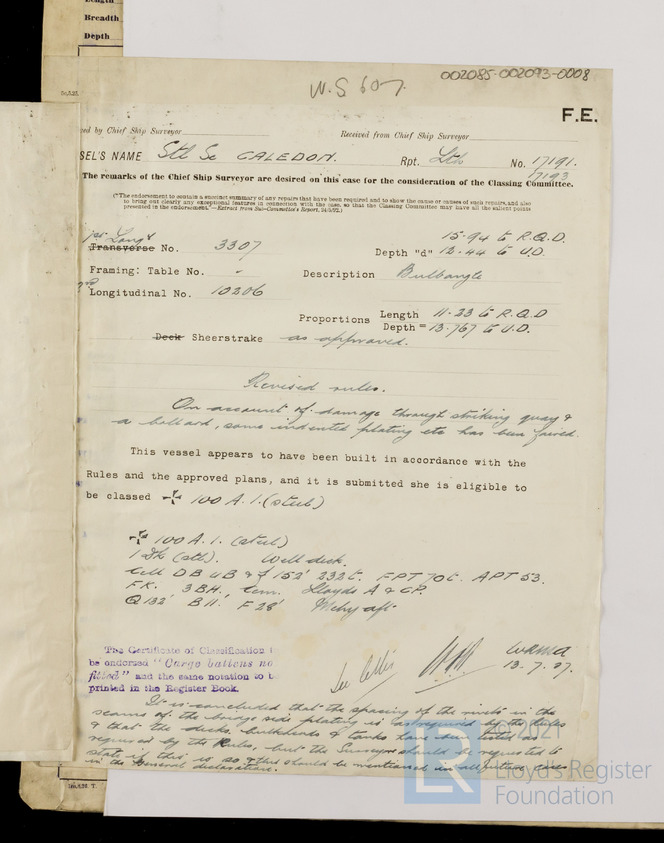 Length
Breadth
Depth
W.S 607.
002085-002093-0008
F.E.
ed by Chief Ship Surveyor
Received from Chief Ship Surveyor
SEL'S NAME Stl Sc CALEDON. Rpt. Lth No. 17191.
17193
The remarks of the Chief Ship Surveyor are desired on this case for the consideration of the Classing Committee.
("The endorsement to contain a succinct summary of any repairs that have been required and to show the same or causes of such repairs, and also
to bring out clearly any exceptional features in connection with the case, so that the Classing Committee may have all the salient points
presented in the endorsement."—Extract from Sub-Committee's Report, 24/3/92.)
1st Longl
Transverse No. 3307
15.94 to R.Q.D.
Depth "d" 12.44 to U.D.
Framing: Table No. " Description Bulbangle
2nd Longitudinal No. 10206
Proportions Length 11.23 to R.Q.D
Depth = 13.767 to U.D.
Deck Sheerstrake as approved.
Revised rules.
On account of damage through striking quay &
a bollard, some indented plating etc has been faired.
This vessel appears to have been built in accordance with the
Rules and the approved plans, and it is submitted she is eligible to
be classed ✠ 100 A.1. (steel)
✠ 100 A.1. (steel)
1 Dk (stl). Well deck.
Cell DB uB & f 152' 232t. FPT 70t. APT 53.
F.K. 3 BH. Cem. Lloyds A & CP.
Q 132' B 11. F 28' Mchy aft.
The Certificate of Classification t
be endorsed "Cargo battens no
fitted" and the same notation to be
printed in the Register Book.
13.7.27.
It is concluded that the spacing of the rivets in the
seams of the side plating is as required by the Rules
& that the decks, bulkheads & tanks have been tested as
required by the Rules, but the Surveyors should be requested to
state if this is so & this should be mentioned in all future cases
in the General declaration.
@2021
LR
Lloyd's Register
Foundation